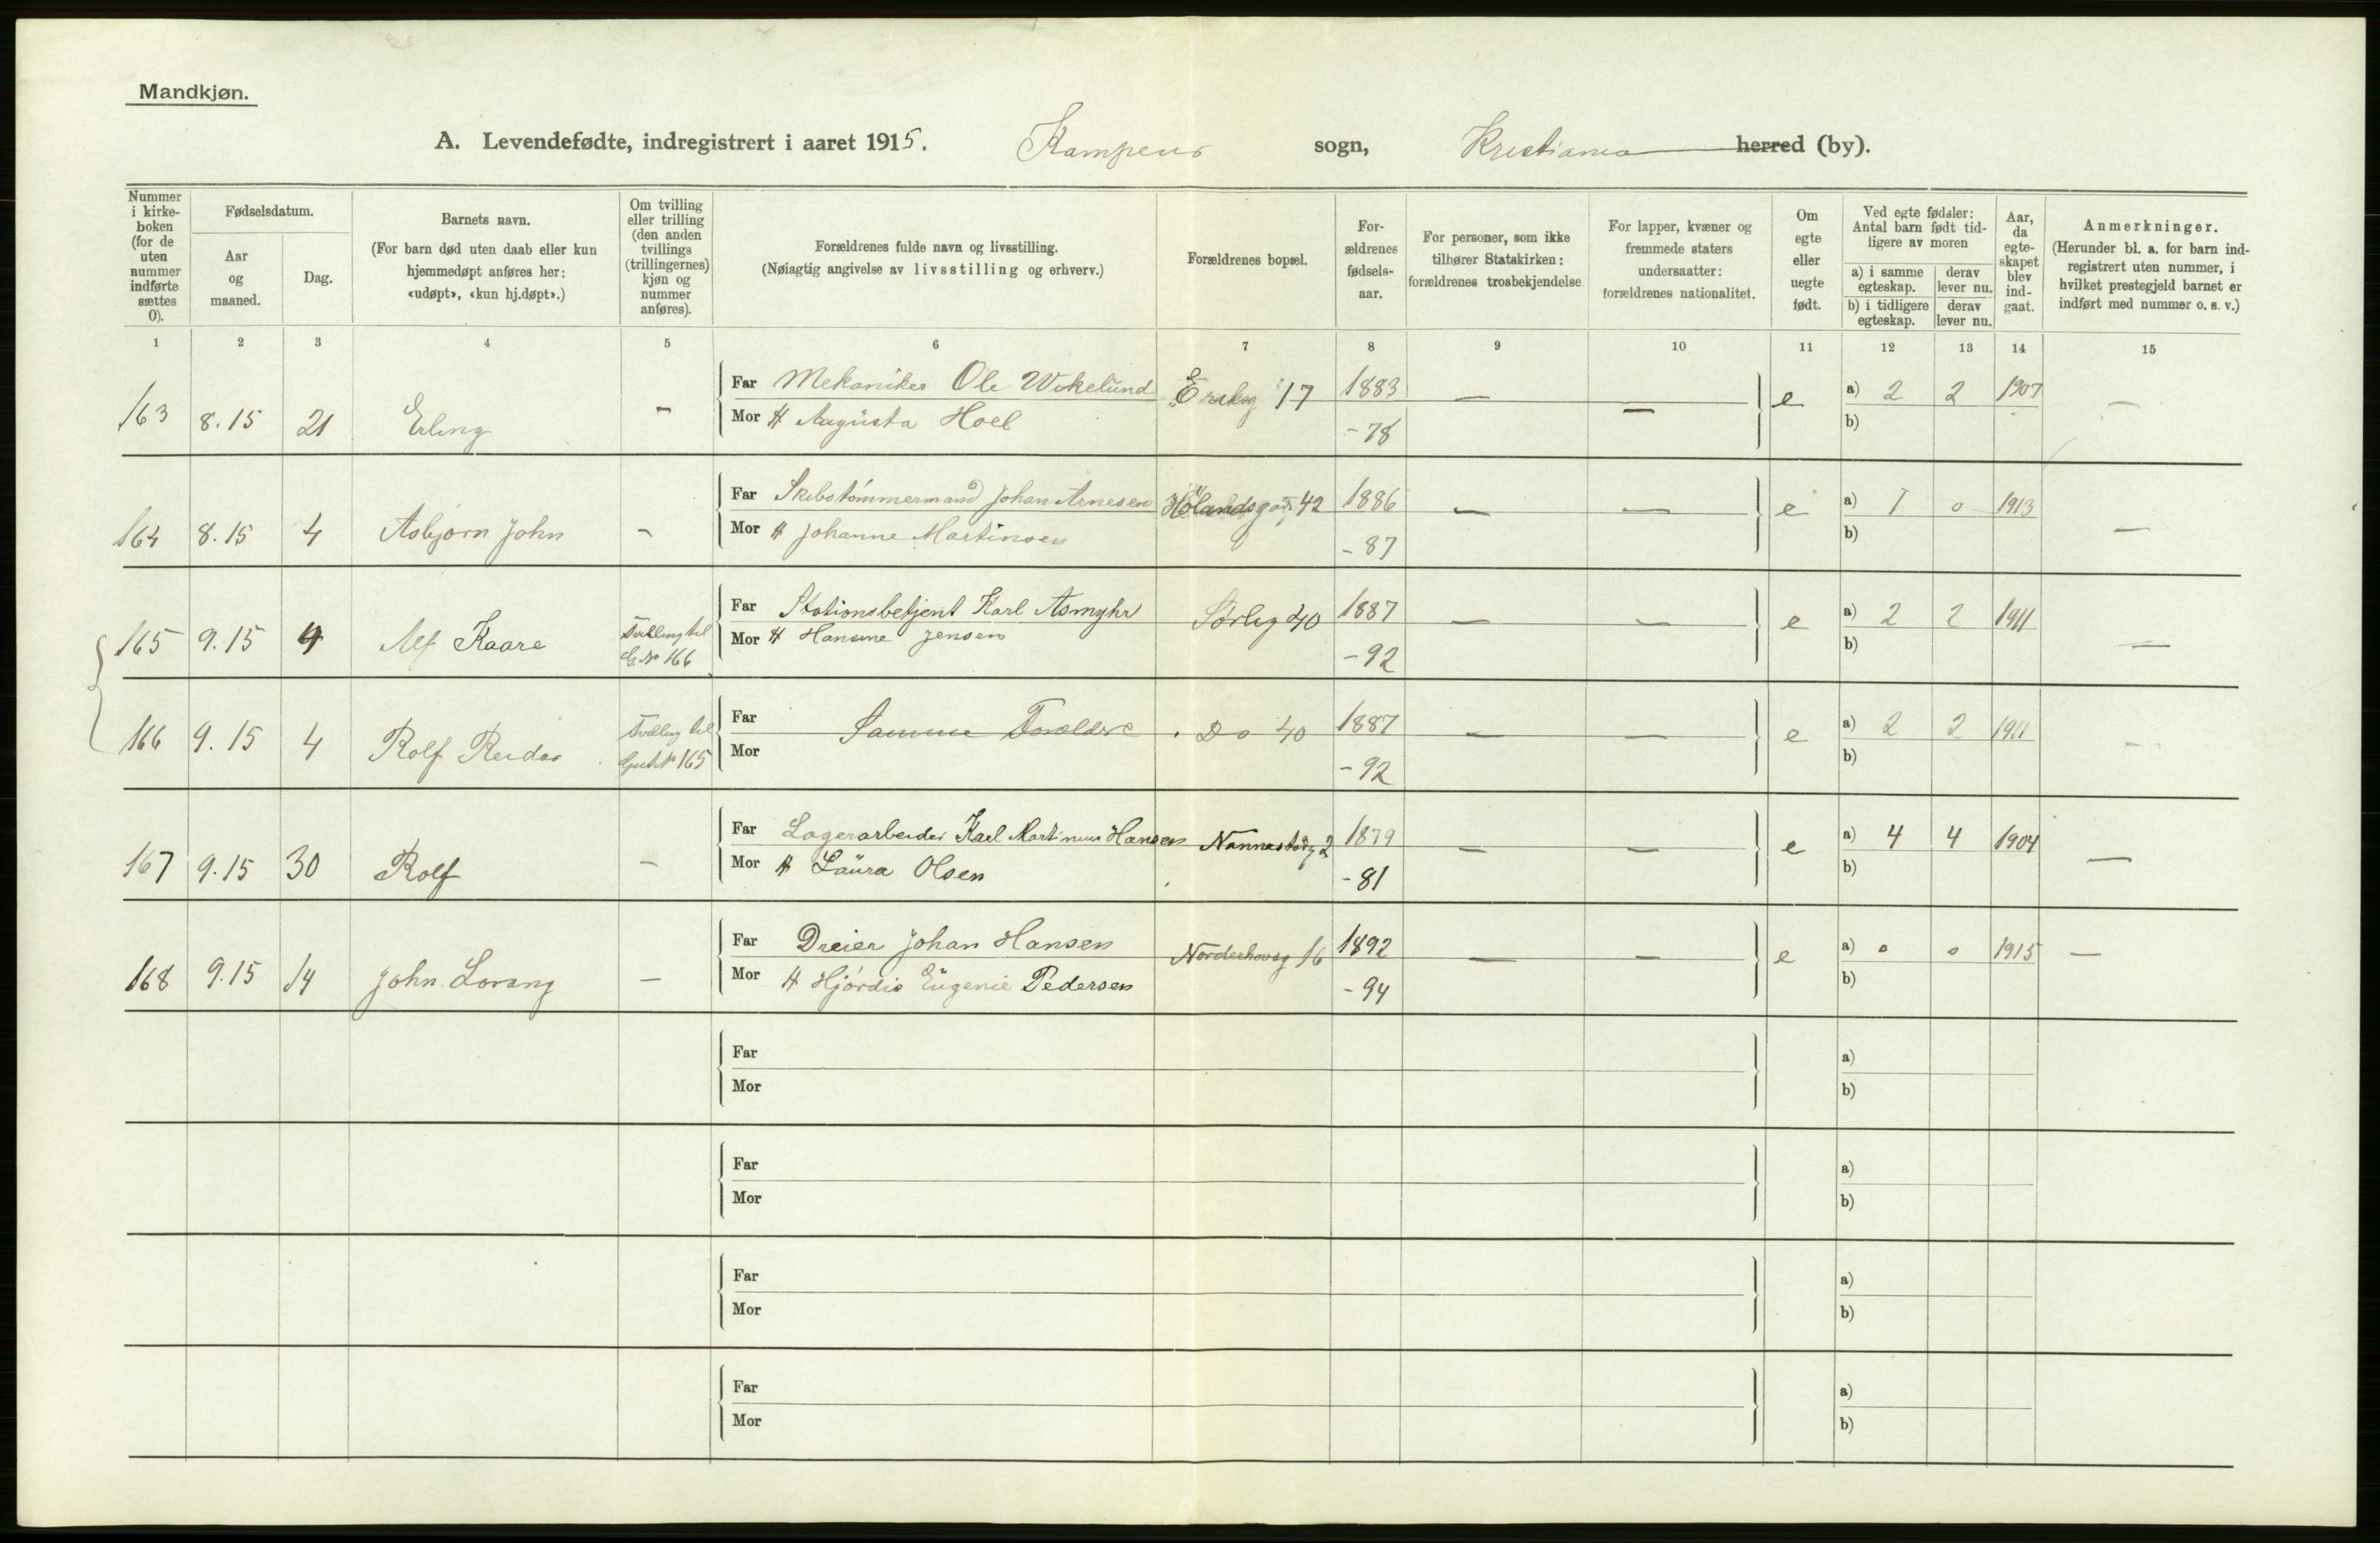 Mandkjøn.
A. Levendefødte, indregistrert i aaret 1915. Kampens sogn, Kristiania herred (by).
Nummer i kirke-boken (for de uten nummer indførte sættes 0).
Fødselsdatum.
Aar og maaned.
Dag.
Barnets navn.
(For barn død uten daab eller kun hjemmedøpt anføres her: «udøpt», «kun hj.døpt».)
Om tvilling eller trilling (den anden tvillings (trillingernes) kjøn og nummer anføres).
Forældrenes fulde navn og livsstilling.
(Nøiagtig angivelse av livsstilling og erhverv.)
Forældrenes bopæl.
For-ældrenes fødsels-aar.
For personer, som ikke tilhører Statskirken: forældrenes trosbekjendelse
For lapper, kvæner og fremmede staters undersaatter: forældrenes nationalitet.
Om egte eller uegte født.
Ved egte fødsler: Antal barn født tid-ligere av moren
a) i samme egteskap.
derav lever nu.
b) i tidligere egteskap.
derav lever nu.
Aar, da egte-skapet blev ind-gaat.
Anmerkninger.
(Herunder bl. a. for barn ind-registrert uten nummer, i hvilket prestegjeld barnet er indført med nummer o. s. v.)
1 2 3 4 5 6 7 8 9 10 11 12 13 14 15
163 8.15 21 Erling - Far Mekaniker Ole Wikelund 17 1883 — — e a) 2 2 1907 —
Mor H Augusta Hoel - 78 b)
164 8.15 4 Asbjørn John - Far Skibstømmermand Johan Arnesen Hølandsgad 42 1886 — — e a) 1 0 1913 —
Mor H Johanne Martinsen - 87 b)
165 9.15 4 Alf Kaare Tvilling til G. No 166 Far Stationsbetjent Karl Asmyhr Sørlig 40 1887 — — e a) 2 2 1911 —
Mor H Hansine Jensen - 92 b)
166 9.15 4 Rolf Reidar Tvilling til Gut No 165 Far Samme Forældre Do 40 1887 — — e a) 2 2 1911 —
Mor - 92 b)
167 9.15 30 Rolf - Far Lagerarbeider Karl Martinius Hansen Nannestadg 2 1879 — — e a) 4 4 1904 —
Mor H Laura Olsen - 81 b)
168 9.15 14 John Lorang - Far Dreier Johan Hansen Norderhovsg 16 1892 — — e a) 0 0 1915 —
Mor H Hjørdis Eugenie Pedersen - 94 b)
Far a)
Mor b)
Far a)
Mor b)
Far a)
Mor b)
Far a)
Mor b)